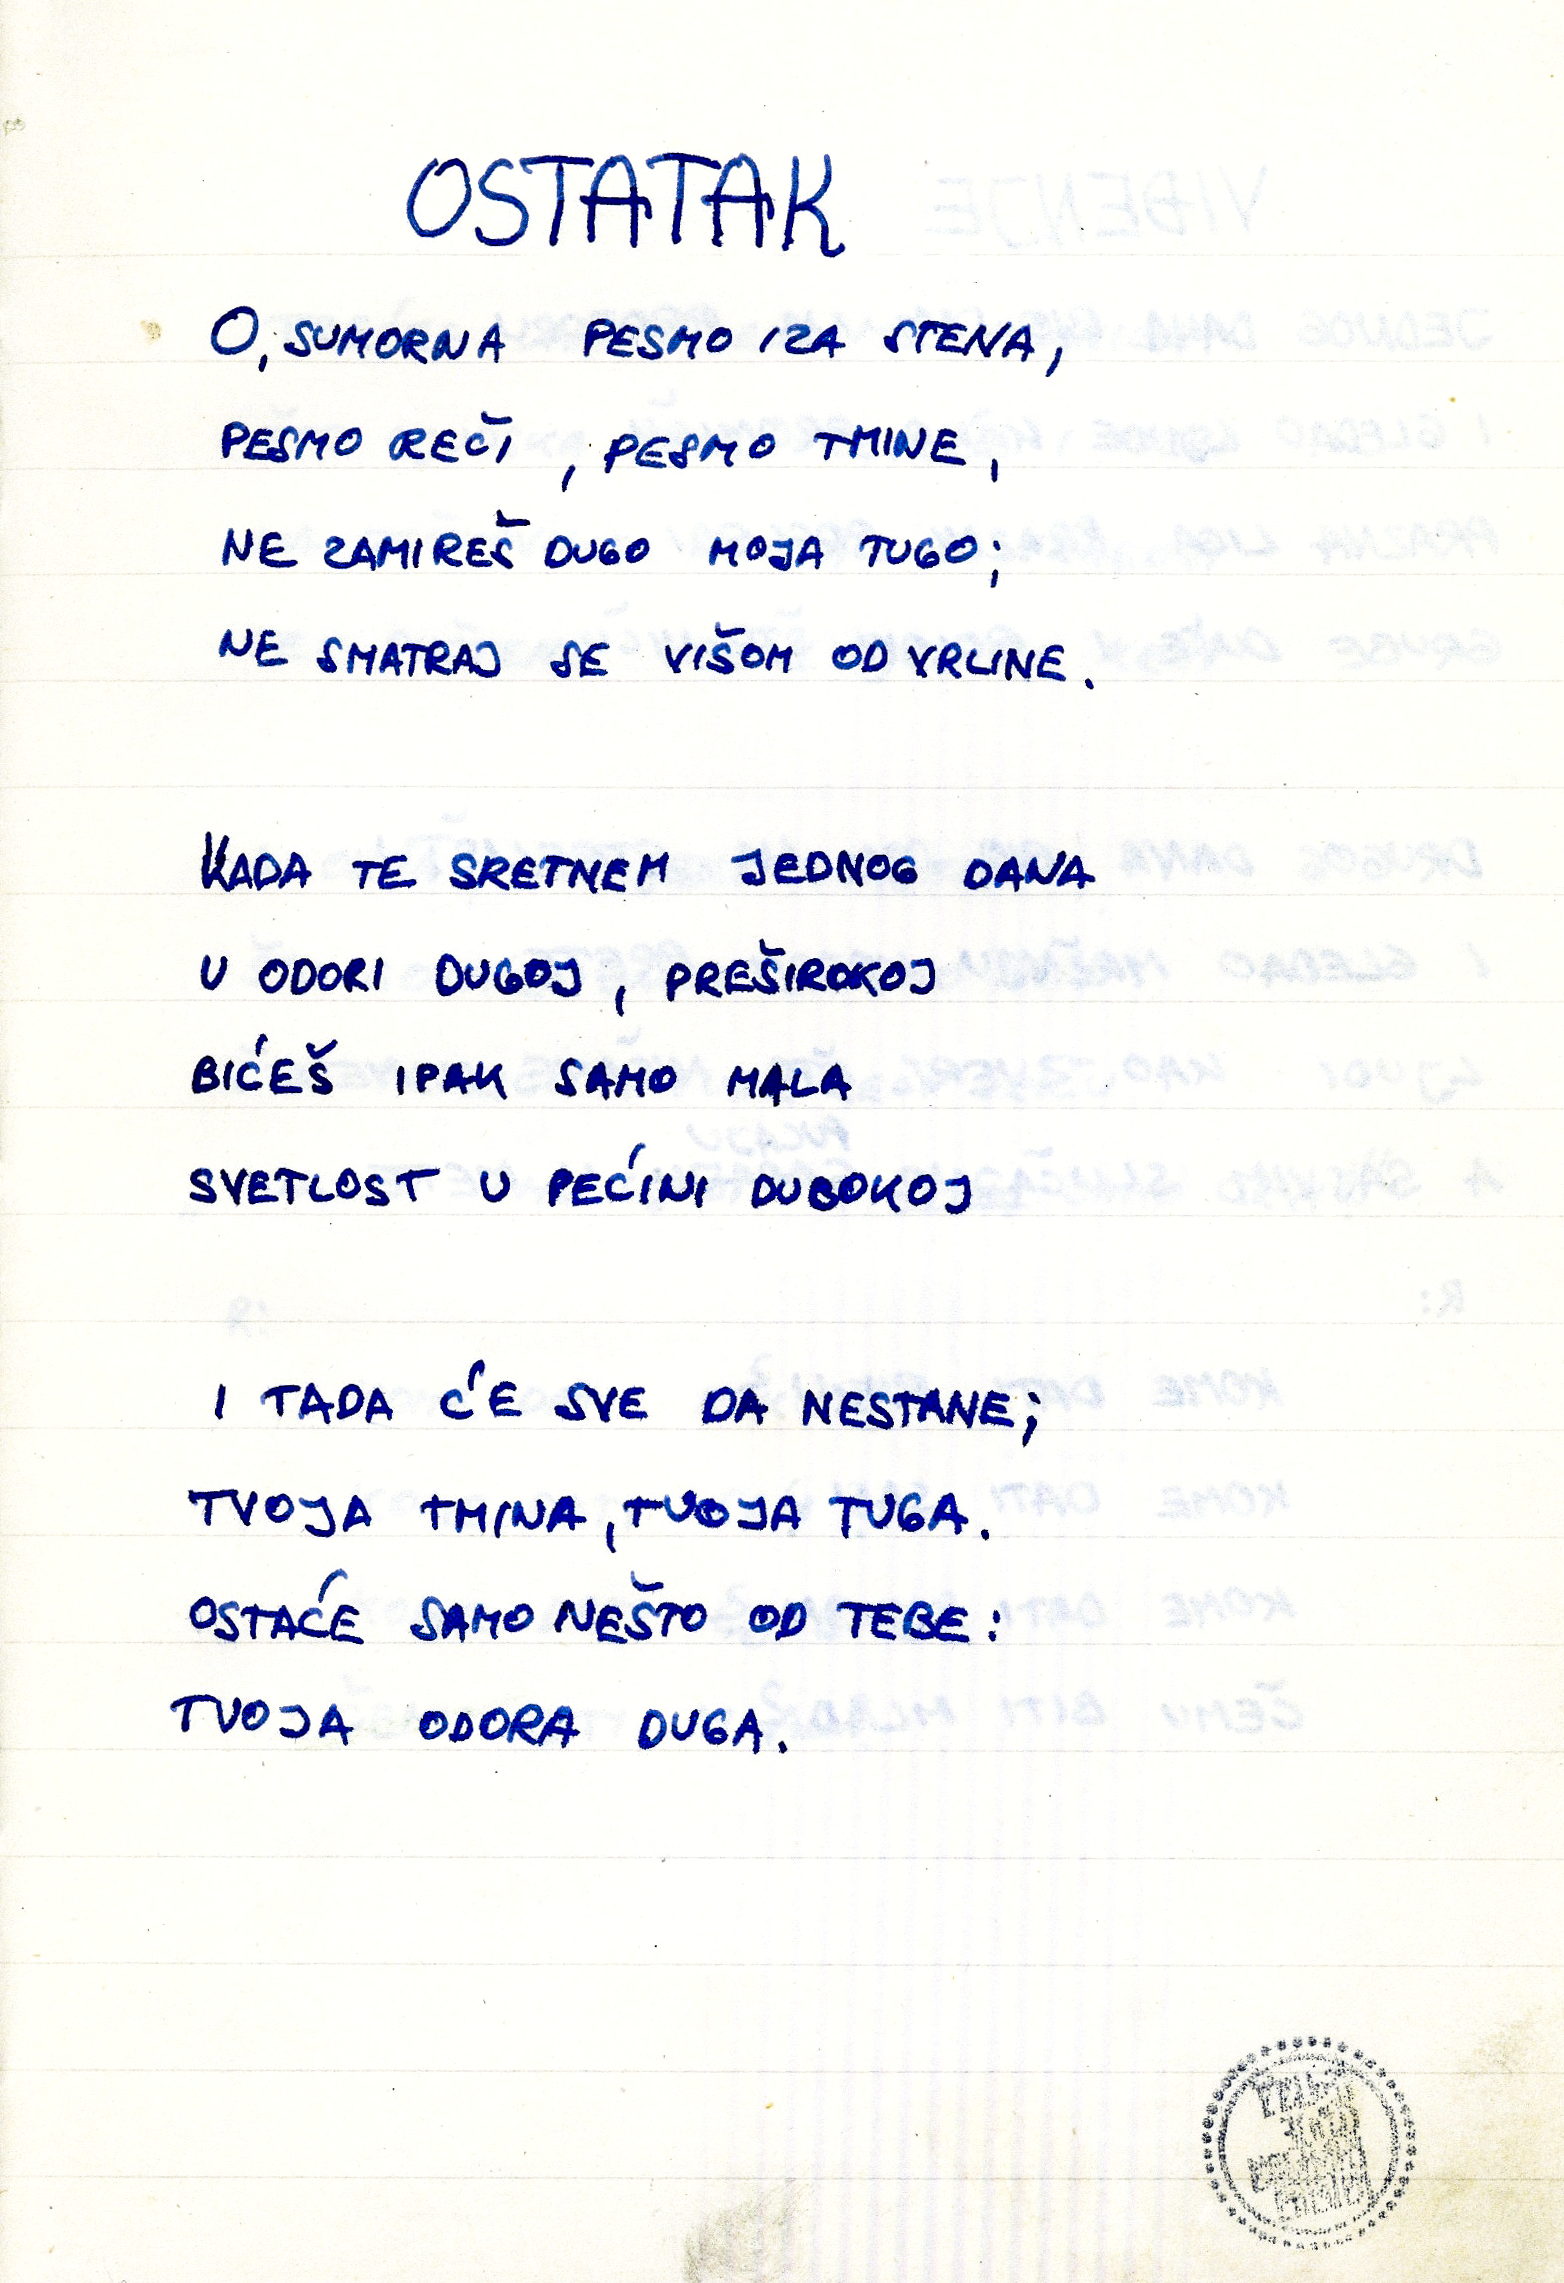 OSTATAK
O, SUMORNA PESMO IZA STENA,
PESMO REČI, PESMO TMINE,
NE ZAMIREŠ DUGO MOJA TUGO;
NE SMATRAJ SE VIŠOM OD VRLINE.
KADA TE SRETNEM JEDNOG DANA
U ODORI DUGOJ, PREŠIROKOJ
BIĆEŠ IPAK SAMO MALA
SVETLOST U PEĆINI DUBOKOJ
I TADA ĆE SVE DA NESTANE;
TVOJA TMINA, TVOJA TUGA.
OSTAĆE SAMO NEŠTO OD TEBE:
TVOJA ODORA DUGA.